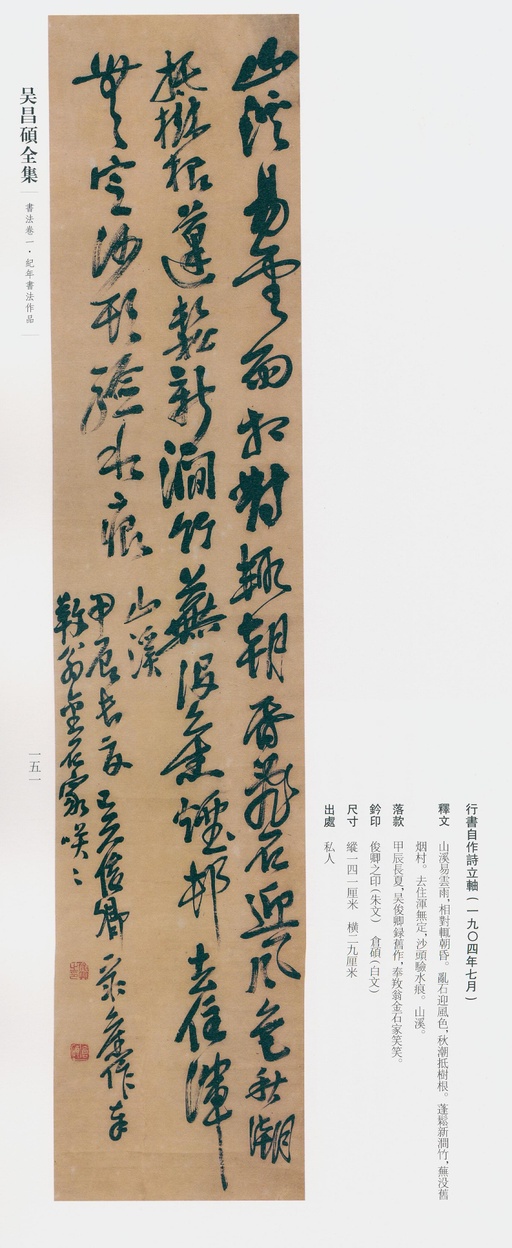 行書自作詩立軸（一九〇四年七月）
釋文　山溪易雲雨，相對輒朝昏。亂石迎風色，秋潮抵樹根。蓬鬆新澗竹，蕪没舊
烟村。去住渾無定，沙頭驗水痕。山溪。
落款　甲辰長夏，吴俊卿録舊作，奉敩翁金石家笑笑。
鈐印　俊卿之印（朱文）　倉碩（白文）
尺寸　縱一四一厘米　横二九厘米
出處　私人
山溪易雲雨相對輒朝昏亂石迎風色秋潮
抵樹根蓬鬆新澗竹蕪没舊煙邨去住渾
無定沙頭驗水痕
山溪
甲辰長夏吴俊卿录舊作奉
敩翁金石家咲〻
吴昌碩全集
書法卷一·紀年書法作品
一五一